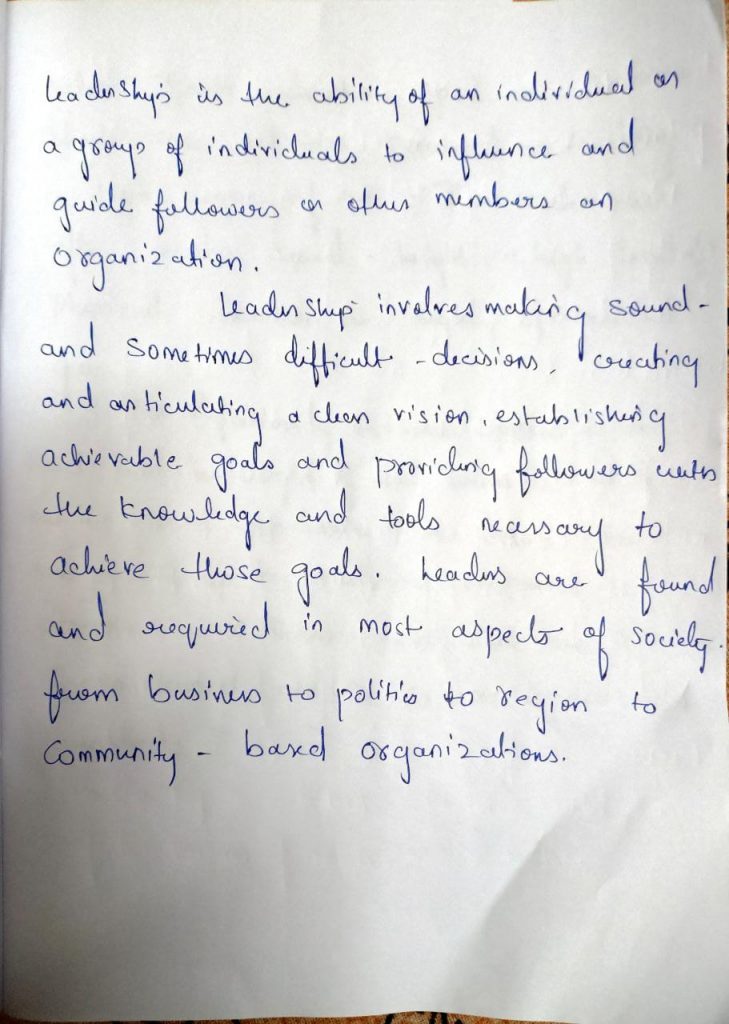 Leadership is the ability of an individual or
a group of individuals to influence and
guide followers or other members an
organization.
Leadership involves making sound -
and sometimes difficult - decisions, creating
and articulating a clear vision, establishing
achievable goals and providing followers with
the knowledge and tools necessary to
achieve those goals. Leaders are found
and required in most aspects of society.
from business to politics to region to
Community - based organizations.